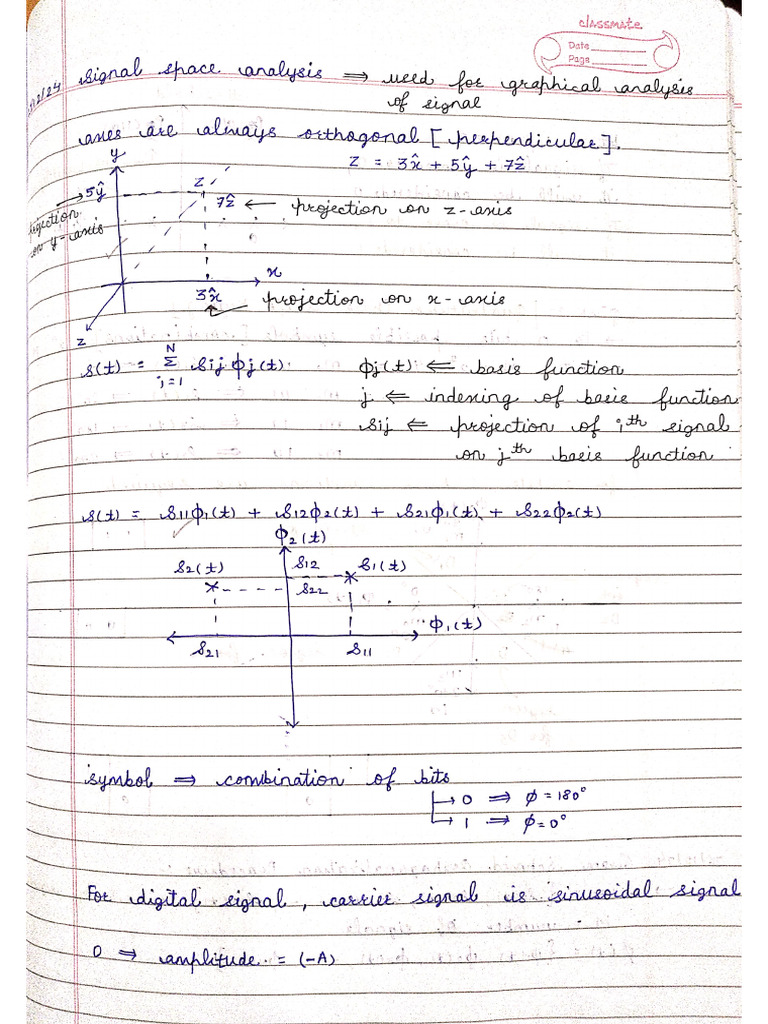 classmate
Date
Page
Signal space analysis ⇒ used for graphical analysis
of signal
axes are always orthogonal [perpendicular].
z = 3x̂ + 5ŷ + 7ẑ
y
5ŷ
z
7ẑ ← projection on z-axis
on y-axis
x
3x̂ projection on x-axis
z
s(t) = N Σ j=1 sij ϕj(t). ϕj(t) ⇐ basis function
j ⇐ indexing of basis function
sij ⇐ projection of ith signal
on jth basis function
s(t) = s11ϕ1(t) + s12ϕ2(t) + s21ϕ1(t) + s22ϕ2(t)
ϕ2(t)
s2(t) s12 s1(t)
s22
ϕ1(t)
s21 s11
symbol ⇒ combination of bits
→ 0 ⇒ ϕ = 180°
→ 1 ⇒ ϕ = 0°
For digital signal, carrier signal is sinusoidal signal
0 ⇒ amplitude = (-A)